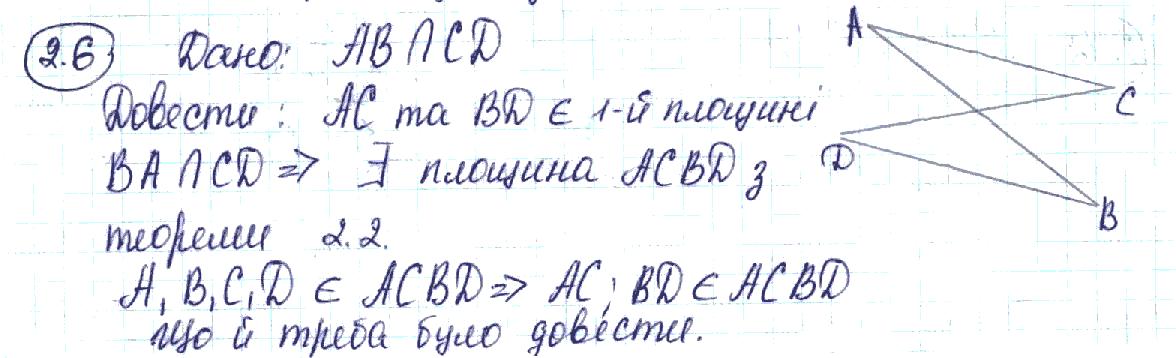 2.6 Дано: AB ∩ CD
Довести: AC та BD ∈ 1-й площині
BA ∩ CD => ∃ площина ACBD з
теореми 2.2.
A, B, C, D ∈ ACBD => AC; BD ∈ ACBD
що й треба було довести.
A
C
D
B